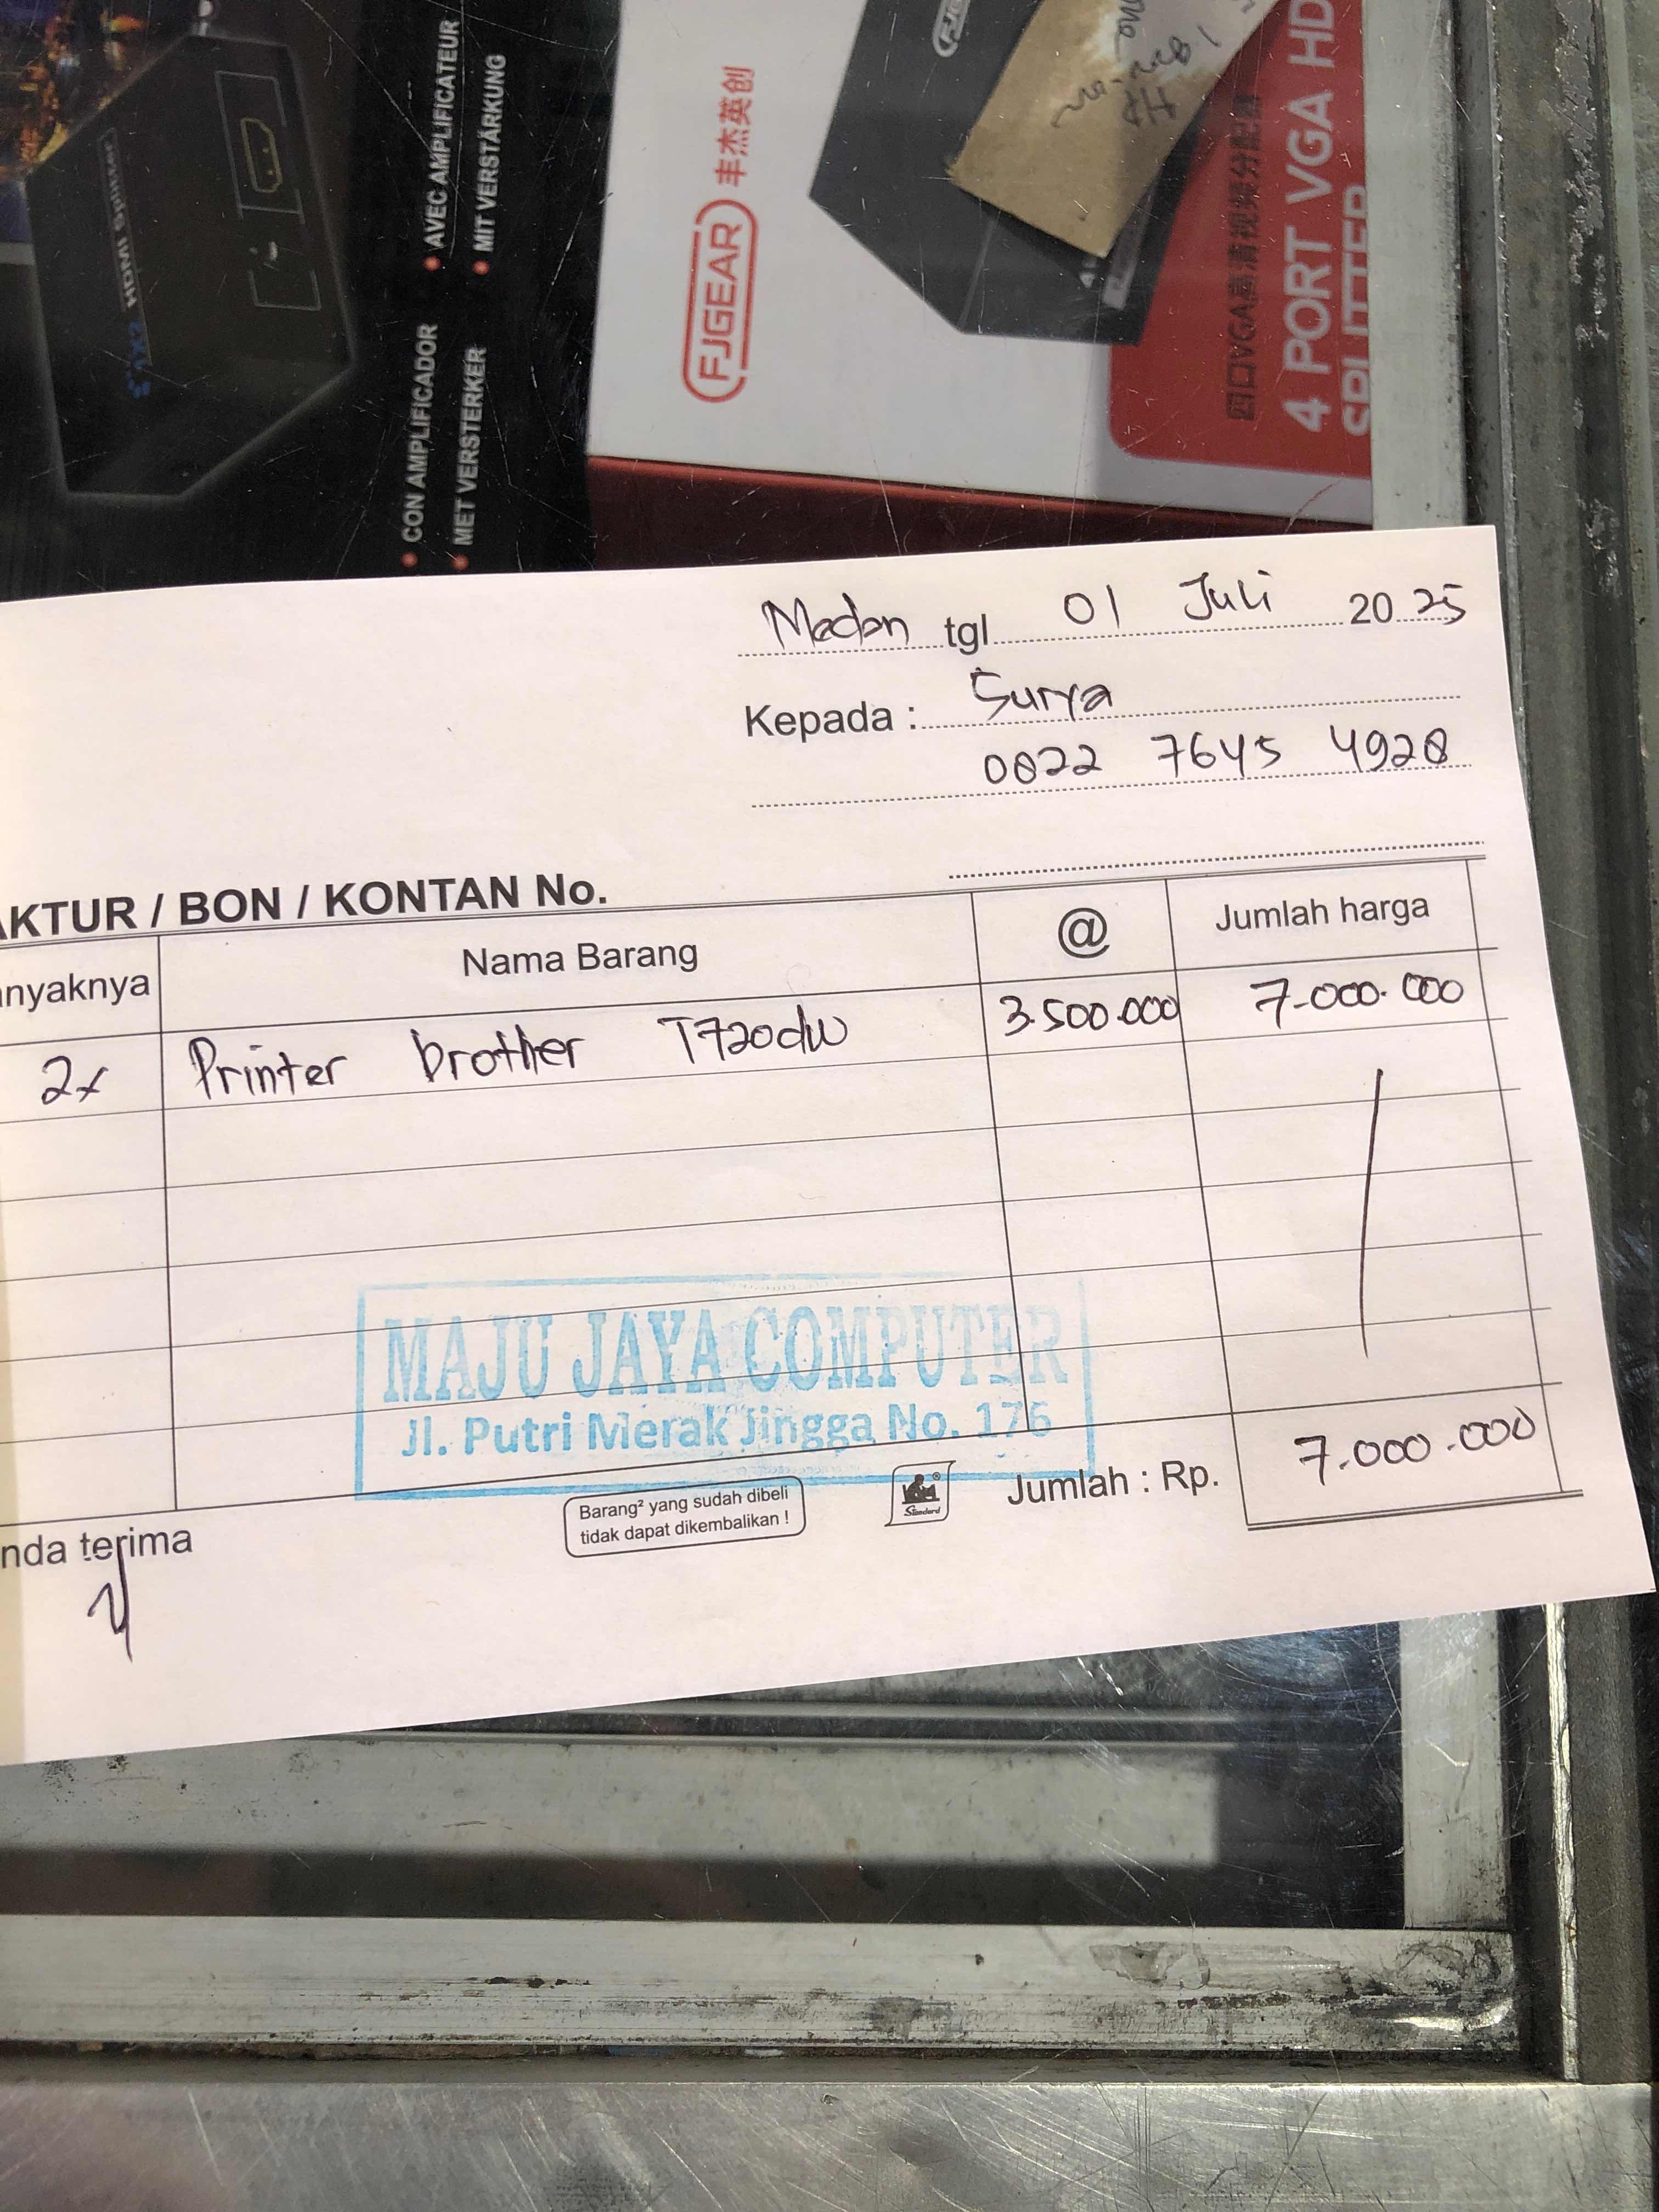 HDMI Splitter
• AVEC AMPLIFICATEUR
• MIT VERSTÄRKUNG
• CON AMPLIFICADOR
• MET VERSTERKER
FJGEAR 丰杰英创
四口VGA高清视频分配器
4 PORT VGA HD
SPLITTER
Medan tgl 01 Juli 2025
Kepada : Surya
0822 7645 4928
AKTUR / BON / KONTAN No.
anyaknya Nama Barang @ Jumlah harga
2x Printer brother T720dw 3.500.000 7.000.000
MAJU JAYA COMPUTER
Jl. Putri Merak Jingga No. 176
Jumlah : Rp. 7.000.000
Barang² yang sudah dibeli
tidak dapat dikembalikan !
Standard
nda terima